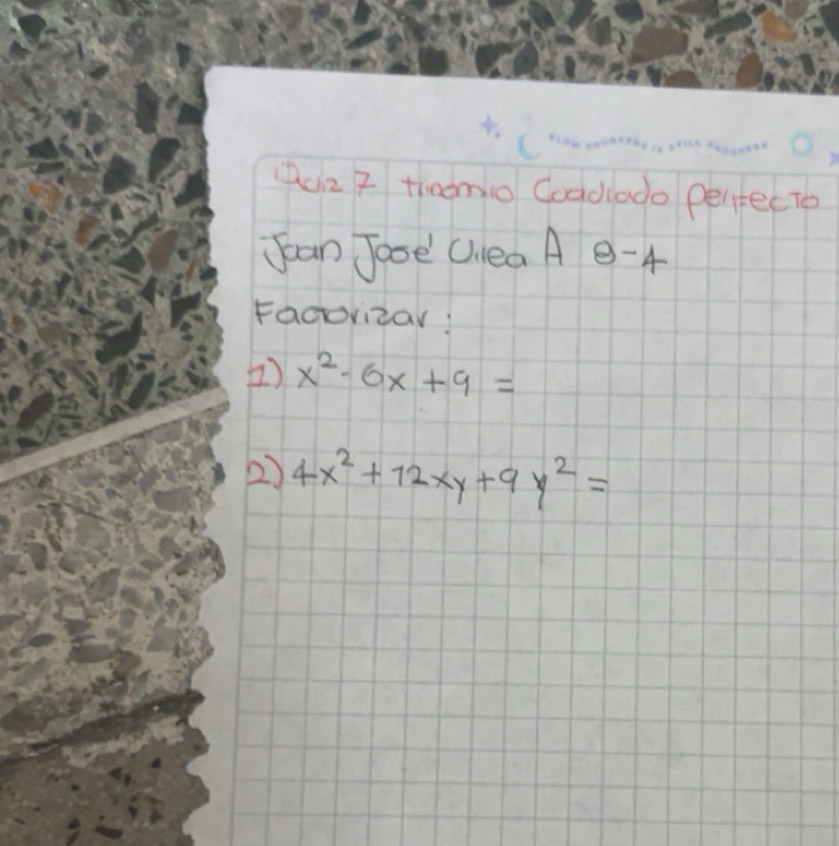 Quiz 7 trinomio Coadrado perfecto
Joan José Urrea A 8-4
Factorizar:
1) x² - 6x + 9 =
2) 4x² + 12xy + 9y² =